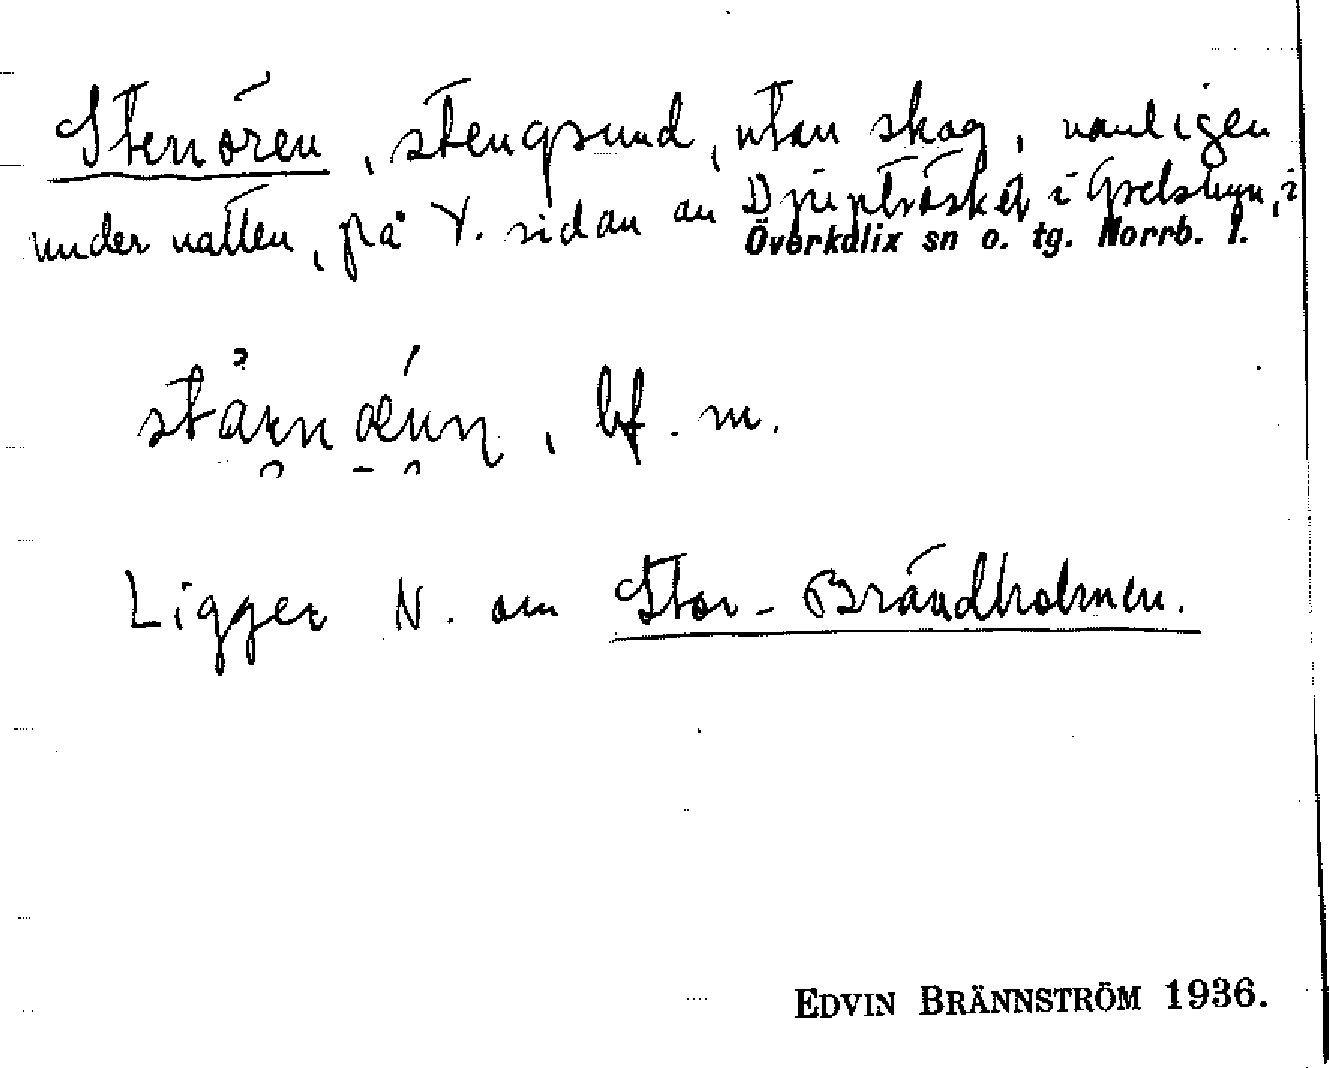 Stenören, stengrund, utan skog, vanligen
under vatten, på V. sidan av Djupträsket i Grelsbyn, i
Överkalix sn o. tg. Norrb. l.
bf. m.
Ligger N. om Stor-Brändholmen.
EDVIN BRÄNNSTRÖM 1936.